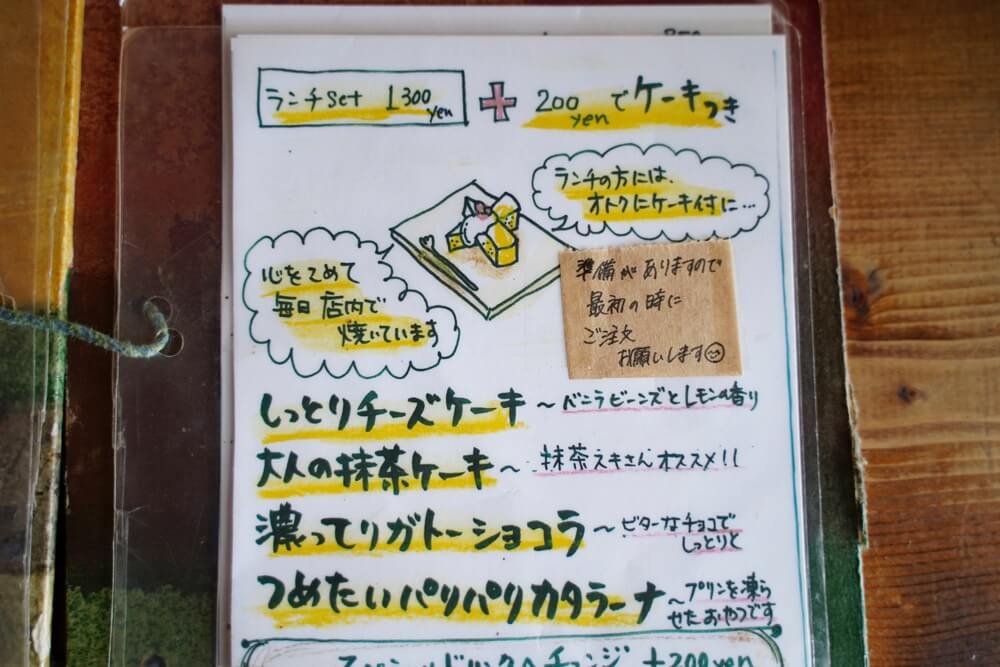 ランチset 1300yen + 200yenでケーキつき
ランチの方には、
オトクにケーキ付に…
心をこめて
毎日店内で
焼いています
準備がありますので
最初の時に
ご注文
お願いします
しっとりチーズケーキ～バニラビーンズとレモンの香り
大人の抹茶ケーキ～抹茶スキさんオススメ!!
濃ってりガトーショコラ～ビターなチョコで
しっとりと
つめたいパリパリカタラーナ～プリンを凍ら
せたおやつです
+200yen